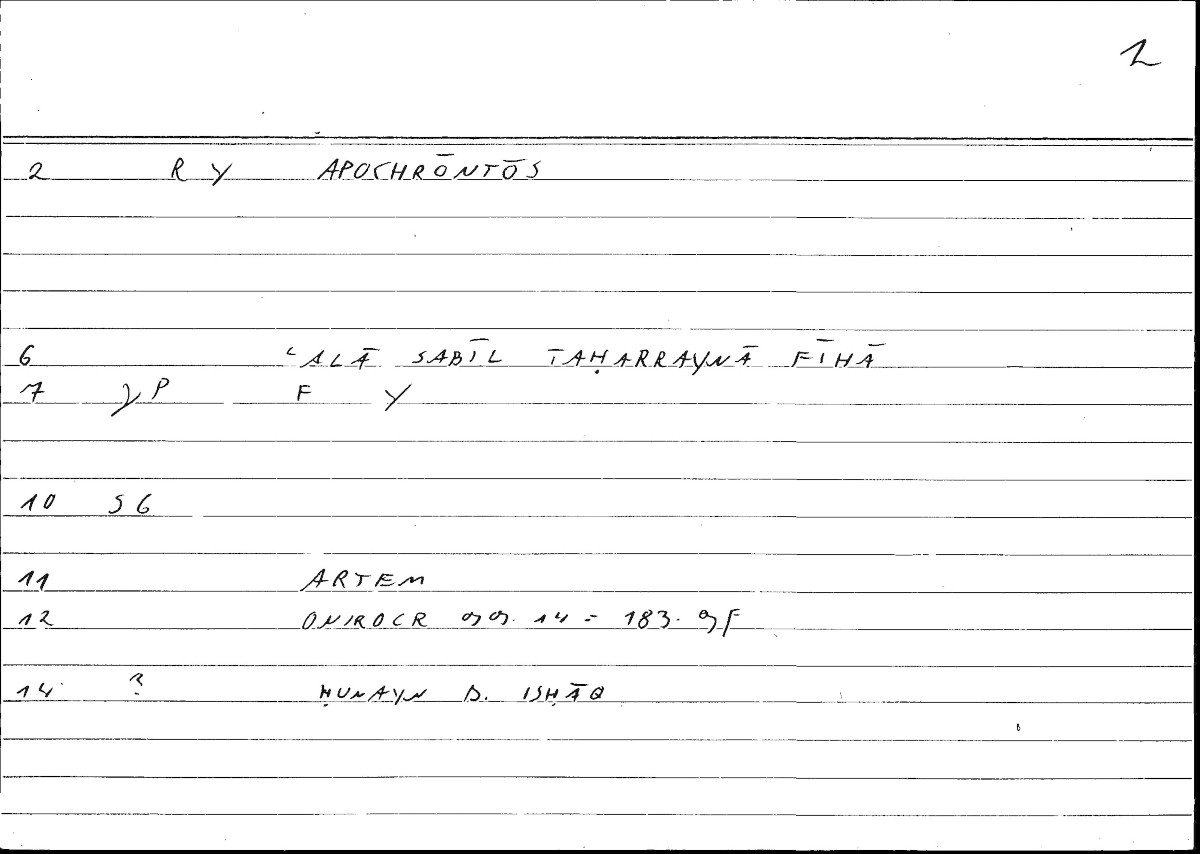 1
2 R Y APOCHRŌNTŌS
6 ʿALĀ SABĪL TAḤARRAYNĀ FĪHĀ
7 γP F Y
10 S6
11 ARTEM
12 ONIROCR 99. 14 = 183. 9f
14 ? ḤUNAYN B. ISḤĀQ